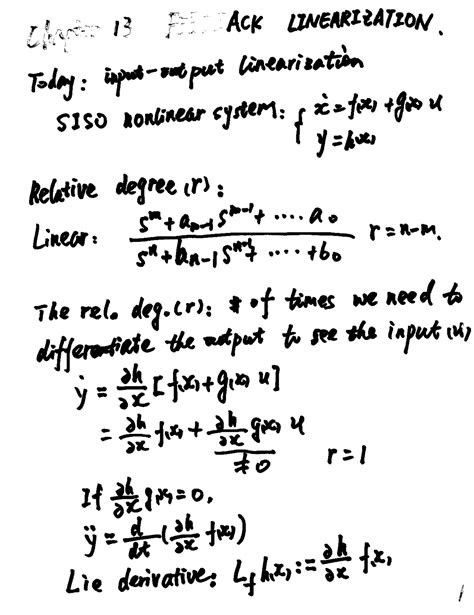 Chapter 13 ACK LINEARIZATION.
Today: input-output linearization
SISO nonlinear system: { ẋ = f(x) + g(x) u
y = h(x)
Relative degree (r):
Linear: \frac{s^m + a_{m-1} s^{m-1} + .... a_0}{s^n + b_{n-1} s^{n-1} + .... + b_0} r = n-m.
The rel. deg. (r): # of times we need to
differentiate the output to see the input (u)
ẏ = ∂h/∂x [f(x) + g(x) u]
= ∂h/∂x f(x) + ∂h/∂x g(x) u
≠ 0 r = 1
If ∂h/∂x g(x) = 0,
ÿ = d/dt (∂h/∂x f(x))
Lie derivative: L_f h(x) := ∂h/∂x f(x)